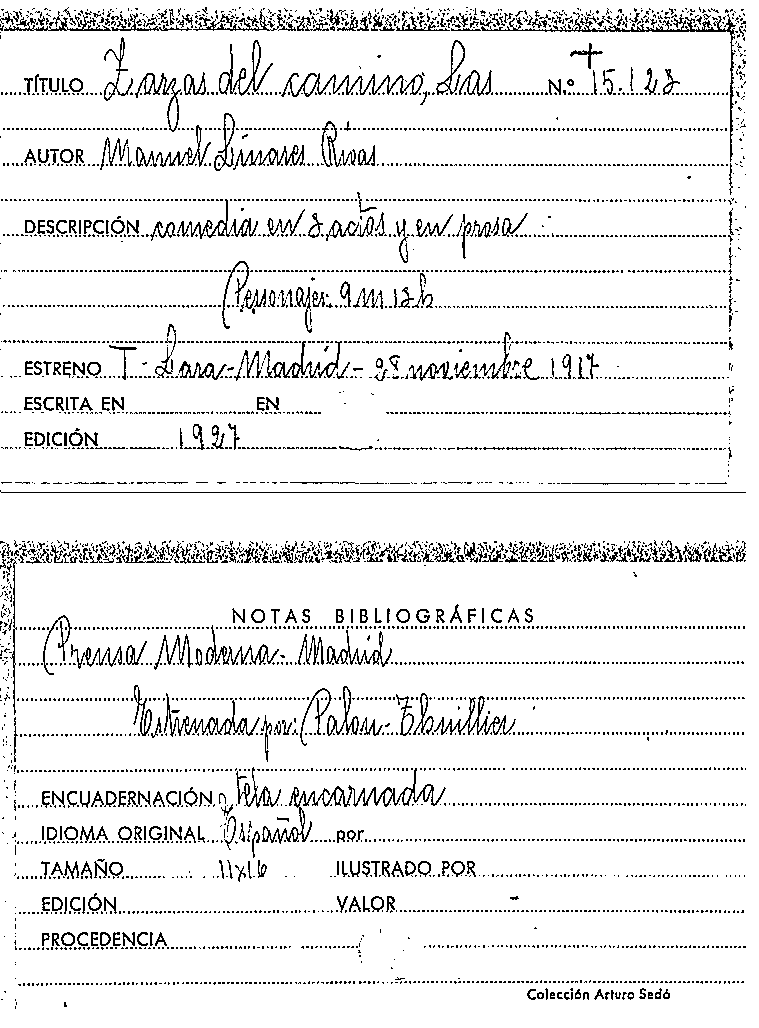 TÍTULO Zarzas del camino, Las N.º 15.123
AUTOR Manuel Linares Rivas
DESCRIPCIÓN comedia en 3 actos y en prosa
Personajes 9 m 13 h
ESTRENO T. Lara - Madrid - 28 noviembre 1917
ESCRITA EN EN
EDICIÓN 1927
NOTAS BIBLIOGRÁFICAS
Prensa Moderna - Madrid
Estrenada por: Palou - Thuillier
ENCUADERNACIÓN tela encarnada
IDIOMA ORIGINAL Español por
TAMAÑO 11x16 ILUSTRADO POR
EDICIÓN VALOR -
PROCEDENCIA
Colección Arturo Sedó